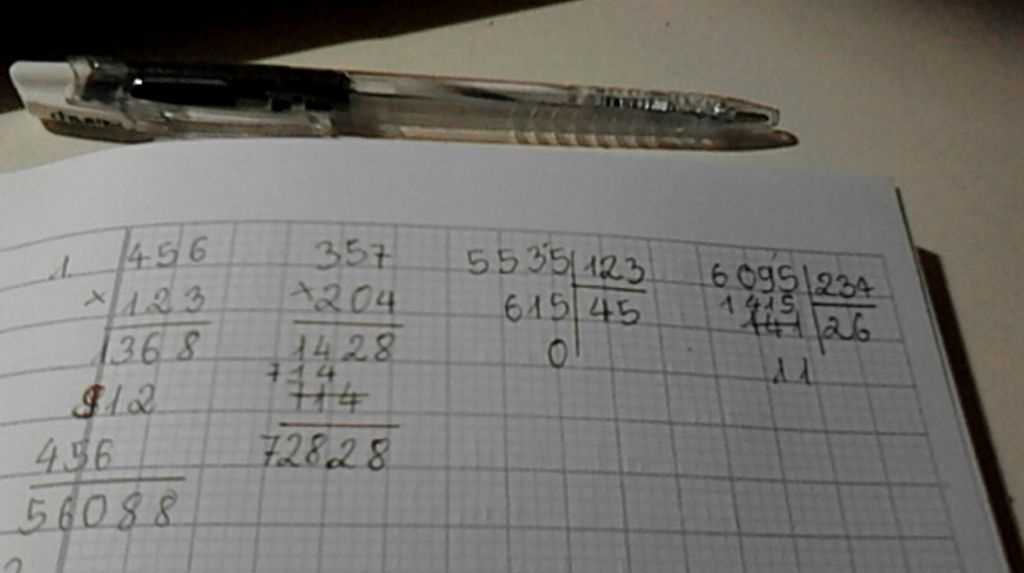 1
456
× 123
1368
912
456
56088
357
× 204
1428
714
714
72828
5535 123
615 45
0
6095 234
1415 26
141
11